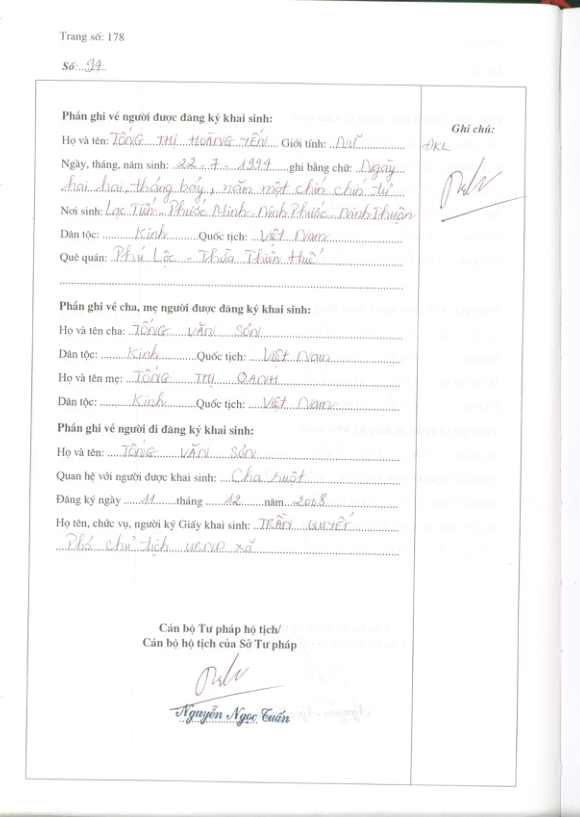 Trang số: 178
Số: 94
Phần ghi về người được đăng ký khai sinh:
Ghi chú:
Họ và tên: TỐNG THỊ HOÀNG YẾN Giới tính: NỮ
ĐKL
Ngày, tháng, năm sinh: 22-7-1994 ghi bằng chữ: Ngày
hai hai, tháng bảy, năm một chín chín tư
Nơi sinh: Lạc Tiến - Phước Minh - Ninh Phước - Ninh Thuận
Dân tộc: Kinh Quốc tịch: Việt Nam
Quê quán: Phú Lộc - Thừa Thiên Huế
Phần ghi về cha, mẹ người được đăng ký khai sinh:
Họ và tên cha: TỐNG VĂN SỎN
Dân tộc: Kinh Quốc tịch: Việt Nam
Họ và tên mẹ: TỐNG THỊ OANH
Dân tộc: Kinh Quốc tịch: Việt Nam
Phần ghi về người đi đăng ký khai sinh:
Họ và tên: TỐNG VĂN SỎN
Quan hệ với người được khai sinh: Cha ruột
Đăng ký ngày 11 tháng 12 năm 2008
Họ tên, chức vụ, người ký Giấy khai sinh: TRẦN QUYẾT
Phó chủ tịch UBND xã
Cán bộ Tư pháp hộ tịch/
Cán bộ hộ tịch của Sở Tư pháp
Nguyễn Ngọc Tuấn